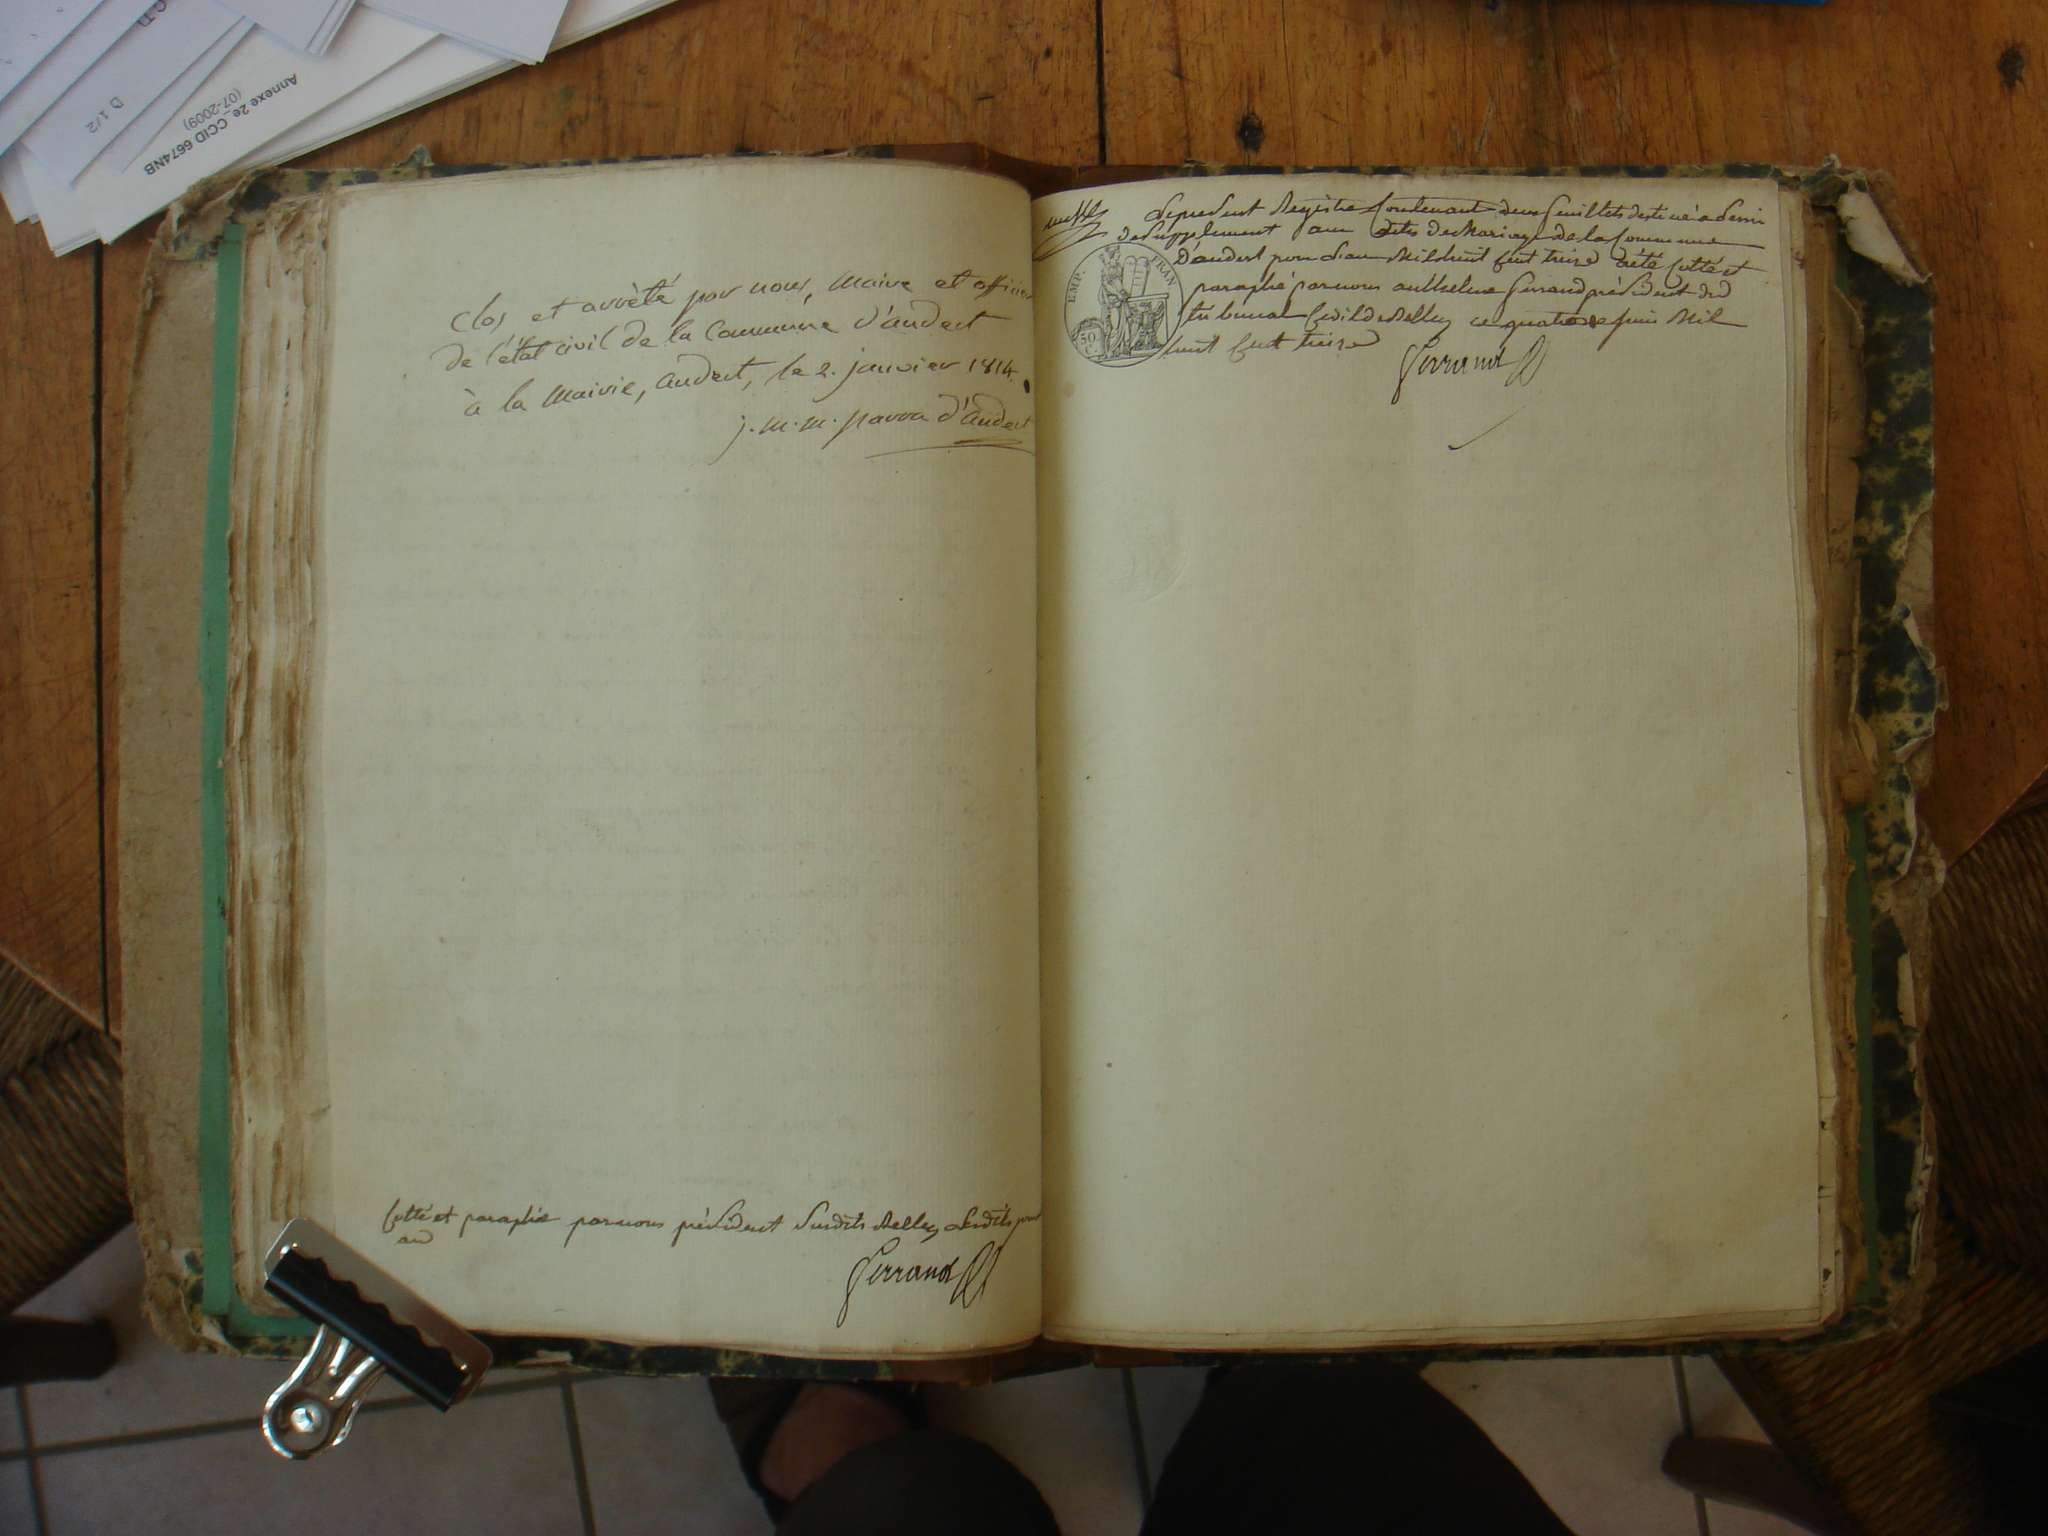 Annexe 2e_CCID 6674NB
(07-2009)
D 1/2
Clos et arrêté par nous, maire et officier
de l'état civil de la Commune d'andert
à la mairie, andert, le 2. janvier 1814.
j. m. m. parra d'andert
Cotté et paraphé par nous président Susdits Belley lesdits jour
an
Ferrand
Le présent Registre Contenant deux feuillets destiné a Servir
de Supplement aux actes de Mariage de la Commune
D'andert pour l'an Mil huit Cent treize a été Cotté et
paraphé par nous anthelme Ferrand président du
tribunal Civil de Belley ce quatorze juin Mil
huit Cent treize
Ferrand
EMP. FRAN
50
C.